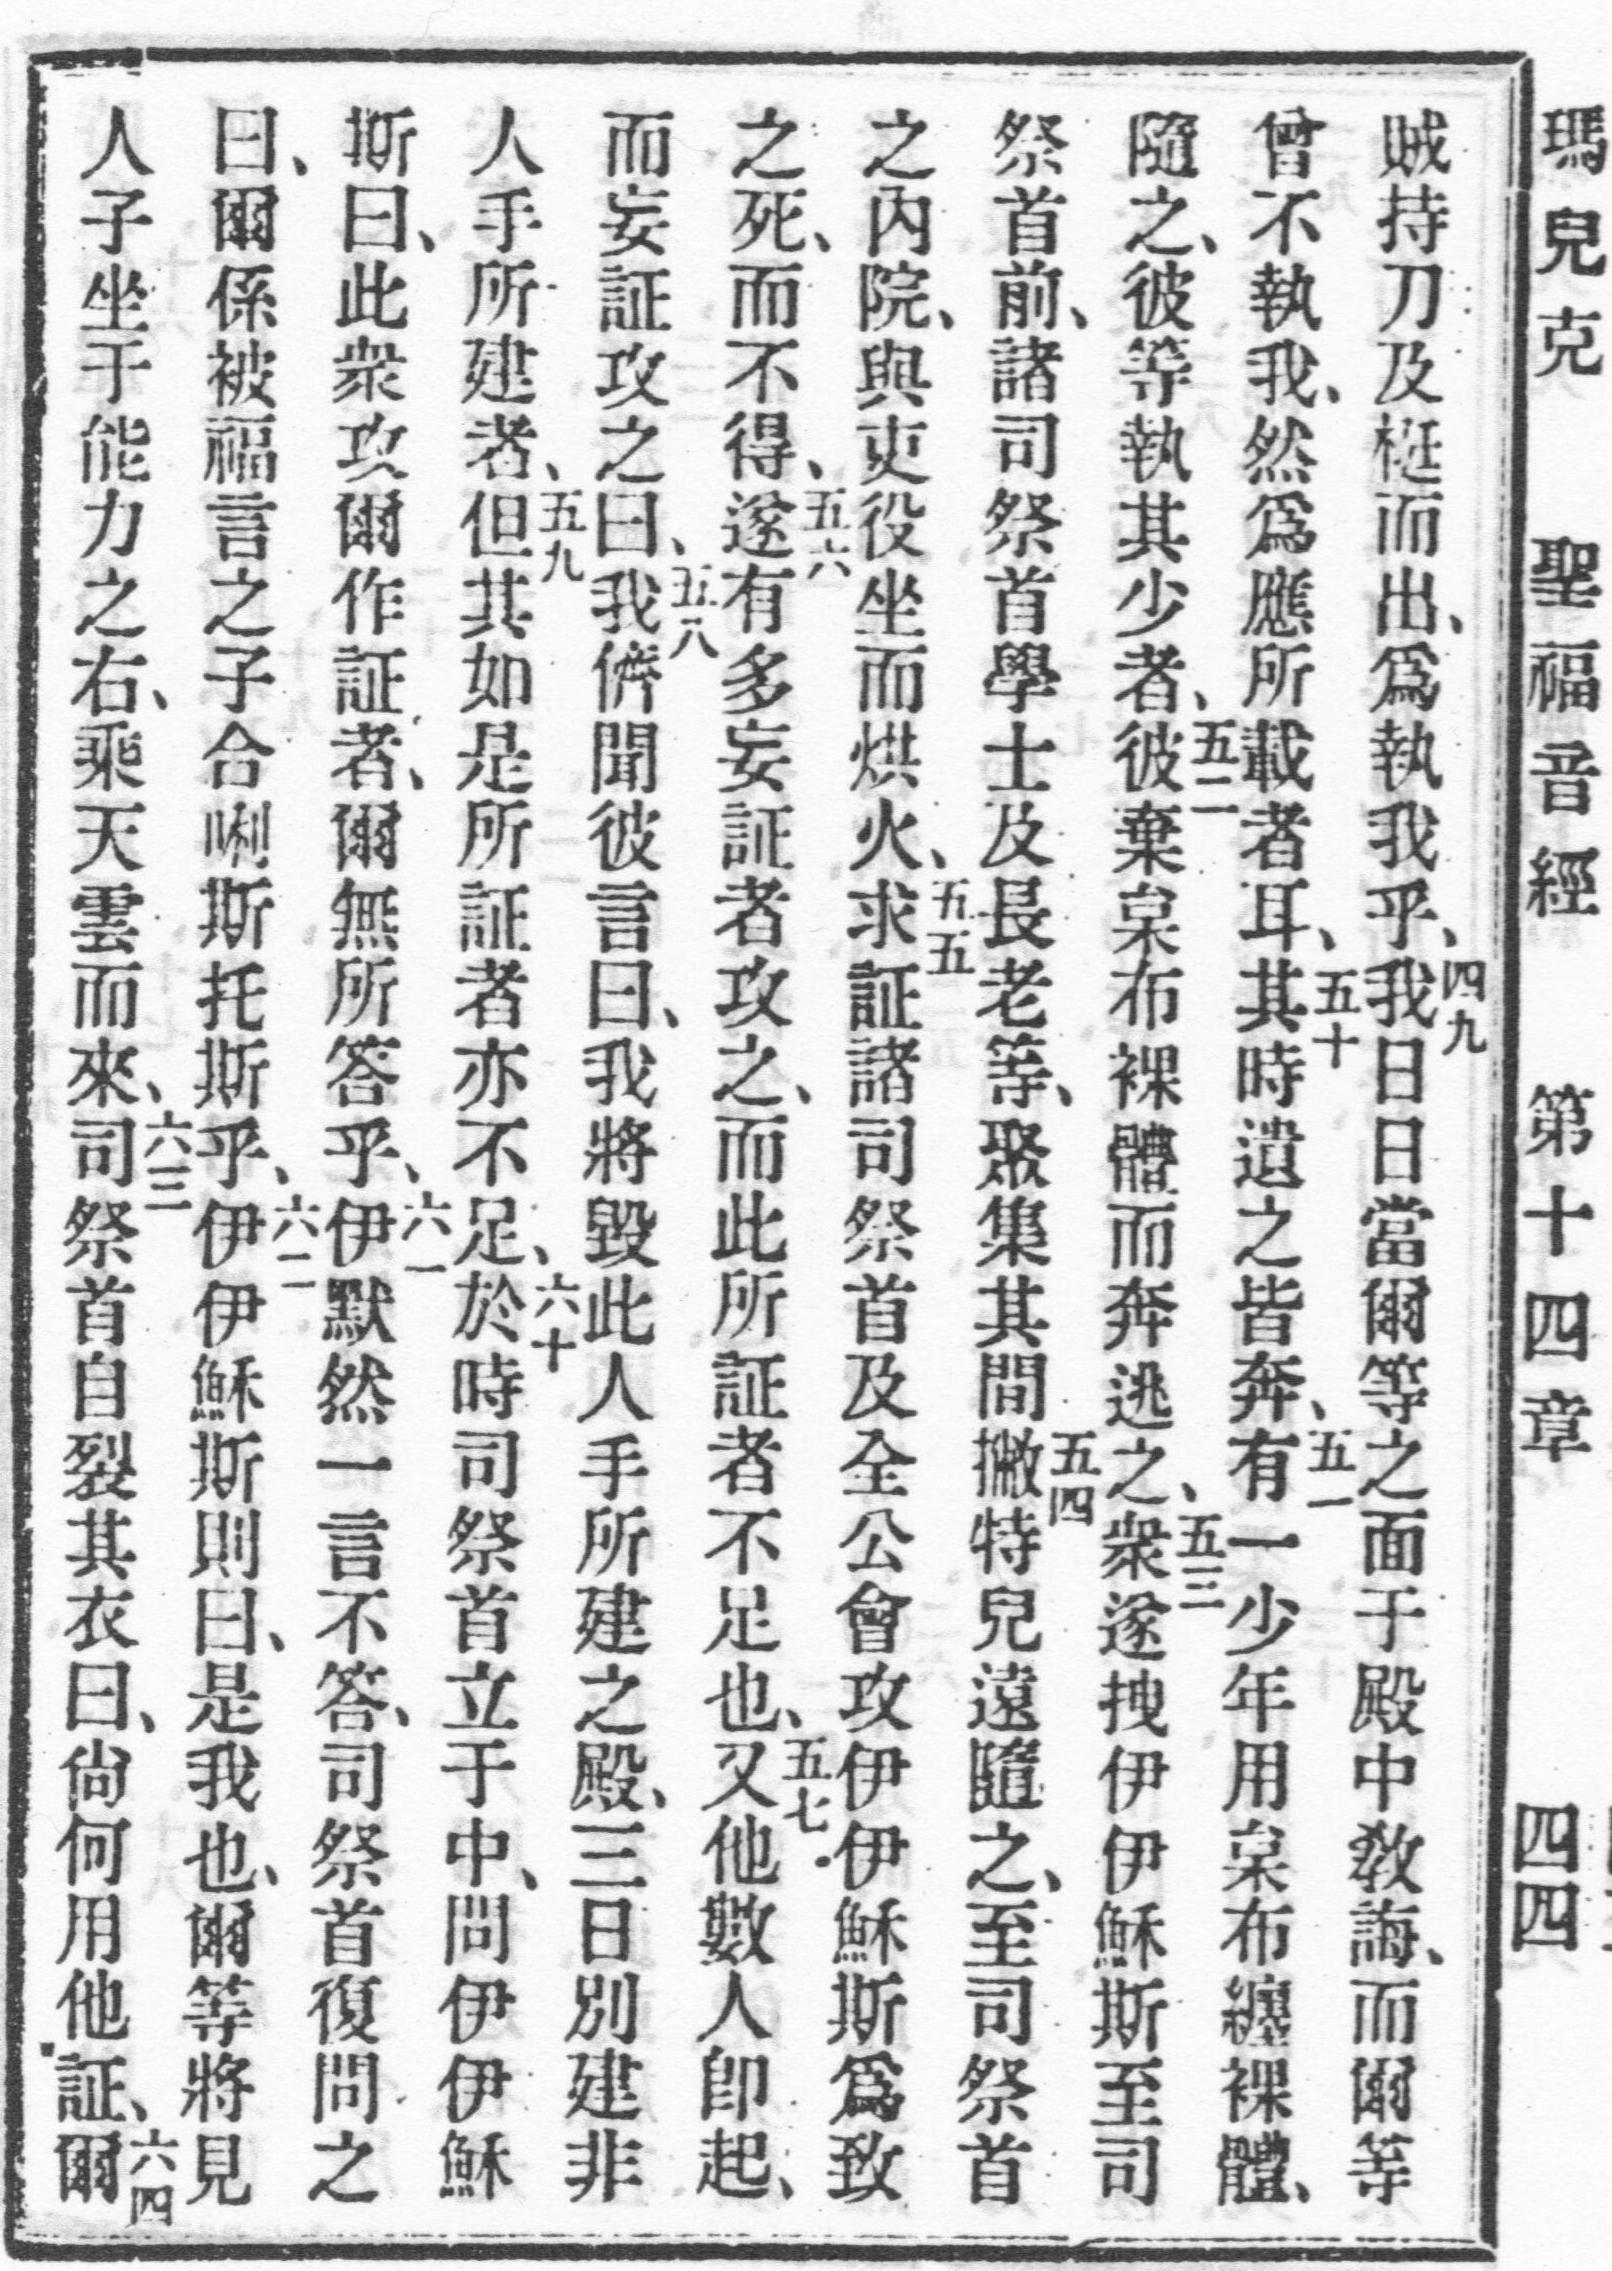 瑪兒克　聖福音經　第十四章　四四
賊持刀及梃而出、爲執我乎、四九我日日當爾等之面于殿中敎誨、而爾等
曾不執我、然爲應所載者耳、五十其時遺之皆奔、五一有一少年用枲布纏裸體、
隨之、彼等執其少者、五二彼棄枲布裸體而奔逃之、五三衆遂拽伊伊穌斯至司
祭首前、諸司祭首學士及長老等、聚集其間五四撇特兒遠隨之、至司祭首
之內院、與吏役坐而烘火、五五求証諸司祭首及全公會攻伊伊穌斯爲致
之死、而不得、五六遂有多妄証者攻之、而此所証者不足也、五七又他數人卽起、
而妄証攻之曰、五八我儕聞彼言曰、我將毀此人手所建之殿、三日別建非
人手所建者、五九但其如是所証者亦不足、六十於時司祭首立于中、問伊伊穌
斯曰、此衆攻爾作証者、爾無所答乎、六一伊默然一言不答、司祭首復問之
曰、爾係被福言之子合唎斯托斯乎、六二伊伊穌斯則曰、是我也、爾等將見
人子坐于能力之右、乘天雲而來、六三司祭首自裂其衣曰、尙何用他証、六四爾